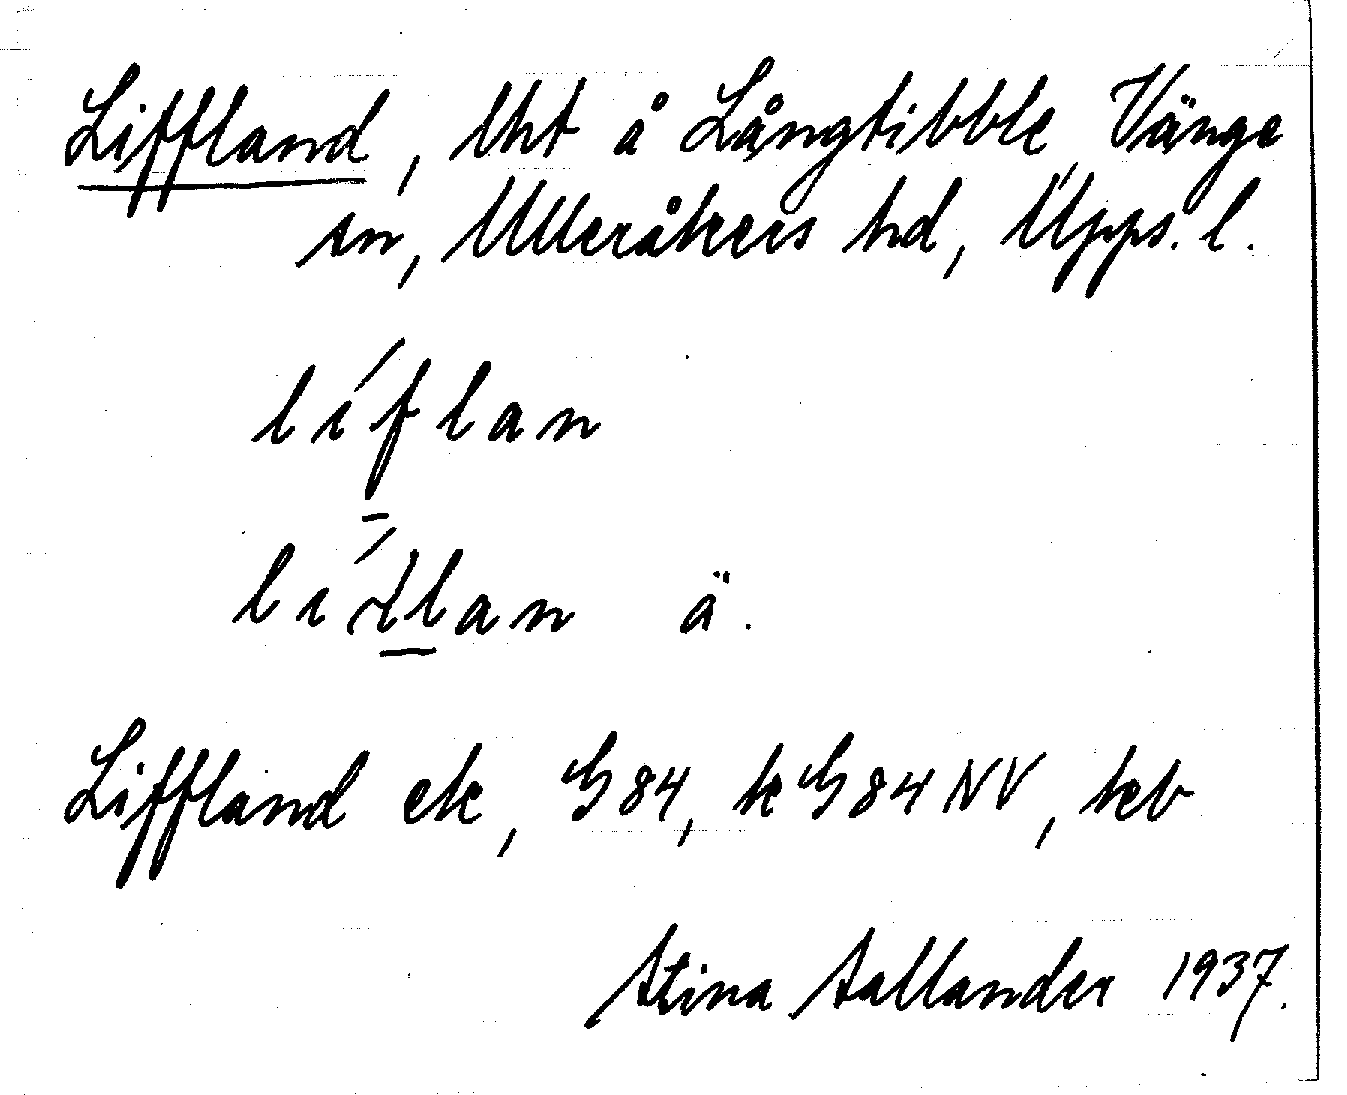 Liffland, lht å Långtibble, Vänge
sn, Ulleråkers hd, Upps. l.
líflan
lívlan ä.
Liffland ek, G 84, kG 84 NV, keb
Stina Sallander 1937.